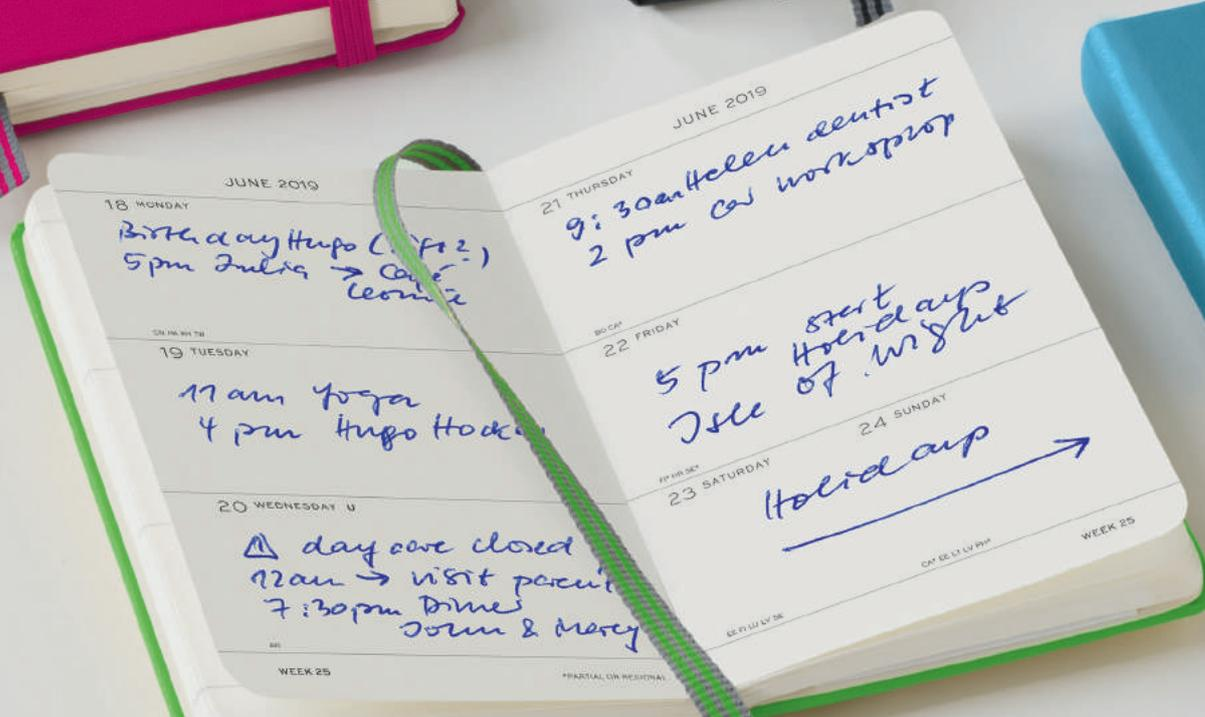 JUNE 2019
18 MONDAY
Birthday Hugo ( ?)
5pm Julia → Café
19 TUESDAY
11 am Yoga
4 pm Hugo
20 WEDNESDAY
day care closed
12am → visit
7:30pm Dinner
John & Mercy
WEEK 25
*PARTIAL OR REGIONAL
JUNE 2019
21 THURSDAY
9:30am Helen dentist
2 pm car workshop
22 FRIDAY
5 pm start
Holidays
Isle of Wight
23 SATURDAY
24 SUNDAY
Holidays
CA* EE LT LV PH*
WEEK 25